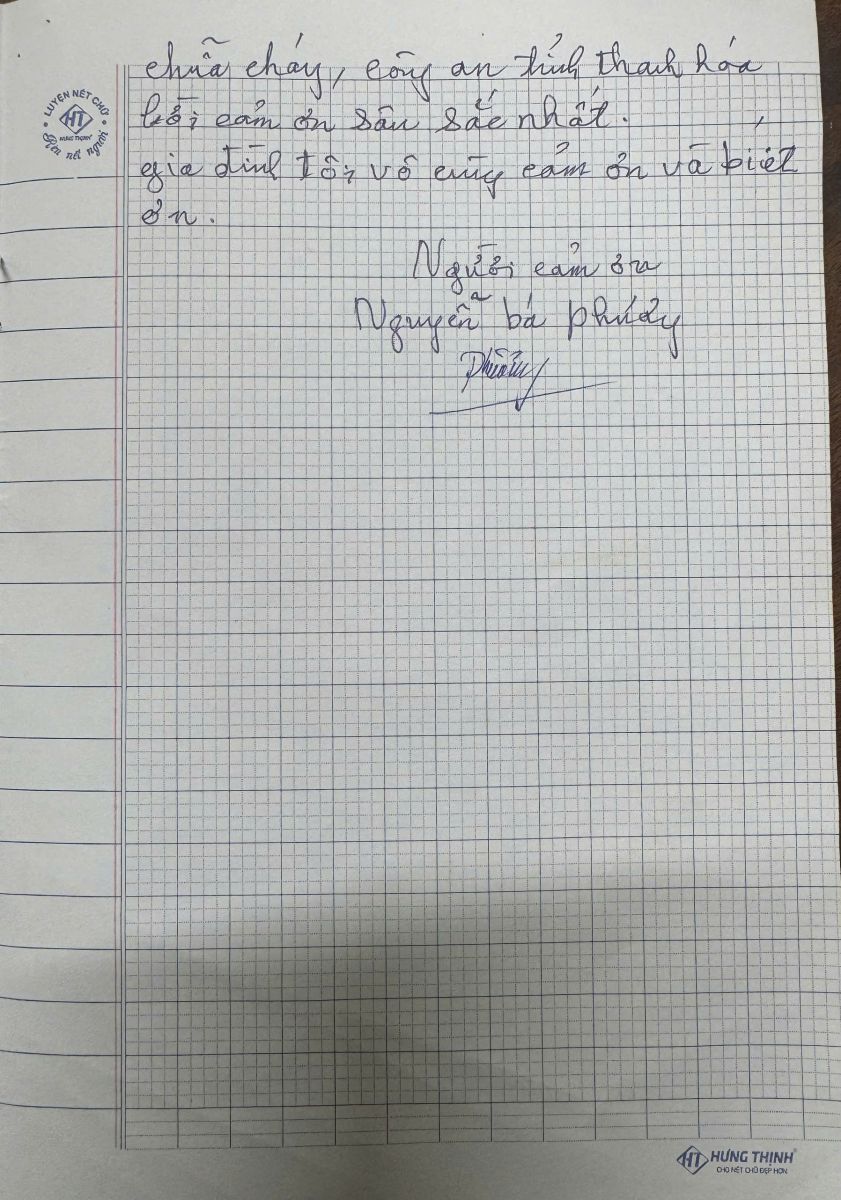 chữa cháy, công an tỉnh thanh hóa
LUYỆN NẾT CHỮ
HT
HƯNG THỊNH
Rèn nết người
lời cảm ơn sâu sắc nhất.
gia đình tôi vô cùng cảm ơn và biết
ơn.
Người cảm ơn
Nguyễn bá
HT HƯNG THỊNH
CHO NÉT CHỮ ĐẸP HƠN